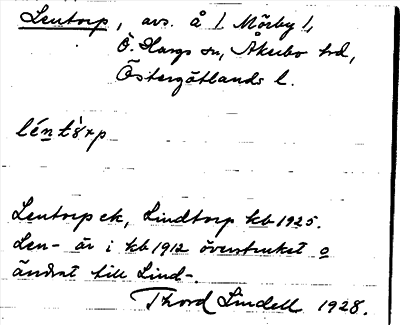 Lentorp, avs. å / Mörby /,
Ö. Hargs sn, Åkerbo hd,
Östergötlands l.
léntòrp
Lentorp ek, Lindtorp kb 1925.
Len- är i kb 1912 överstruket o
ändrat till Lind-.
Thord Lindell 1928.